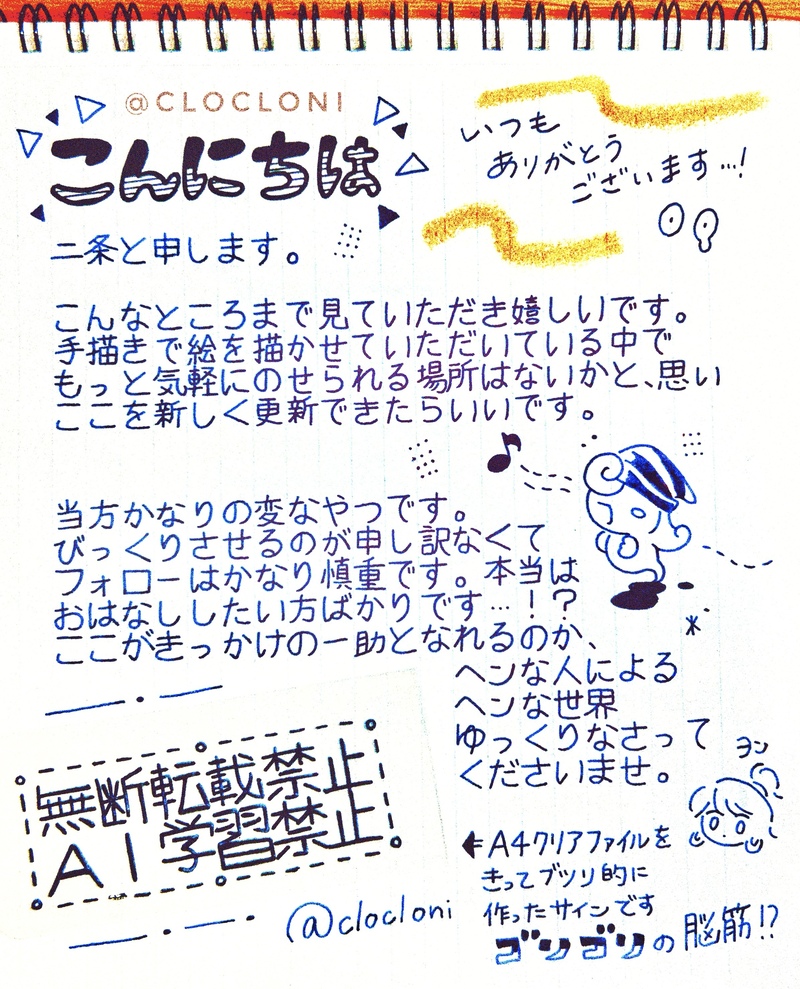 @CLOCLONI
こんにちは
いつも
ありがとう
ございます…!
二条と申します。
こんなところまで見ていただき嬉しいです。
手描きで絵を描かせていただいている中で
もっと気軽にのせられる場所はないかと、思い
ここを新しく更新できたらいいです。
当方かなりの変なやつです。
びっくりさせるのが申し訳なくて
フォローはかなり慎重です。本当は
おはなししたい方ばかりです…!?
ここがきっかけの一助となれるのか、
ヘンな人による
ヘンな世界
ゆっくりなさって
くださいませ。
ヨン
無断転載禁止
AI学習禁止
A4クリアファイルを
きってブツリ的に
作ったサインです
ゴリゴリの脳筋!?
@clocloni